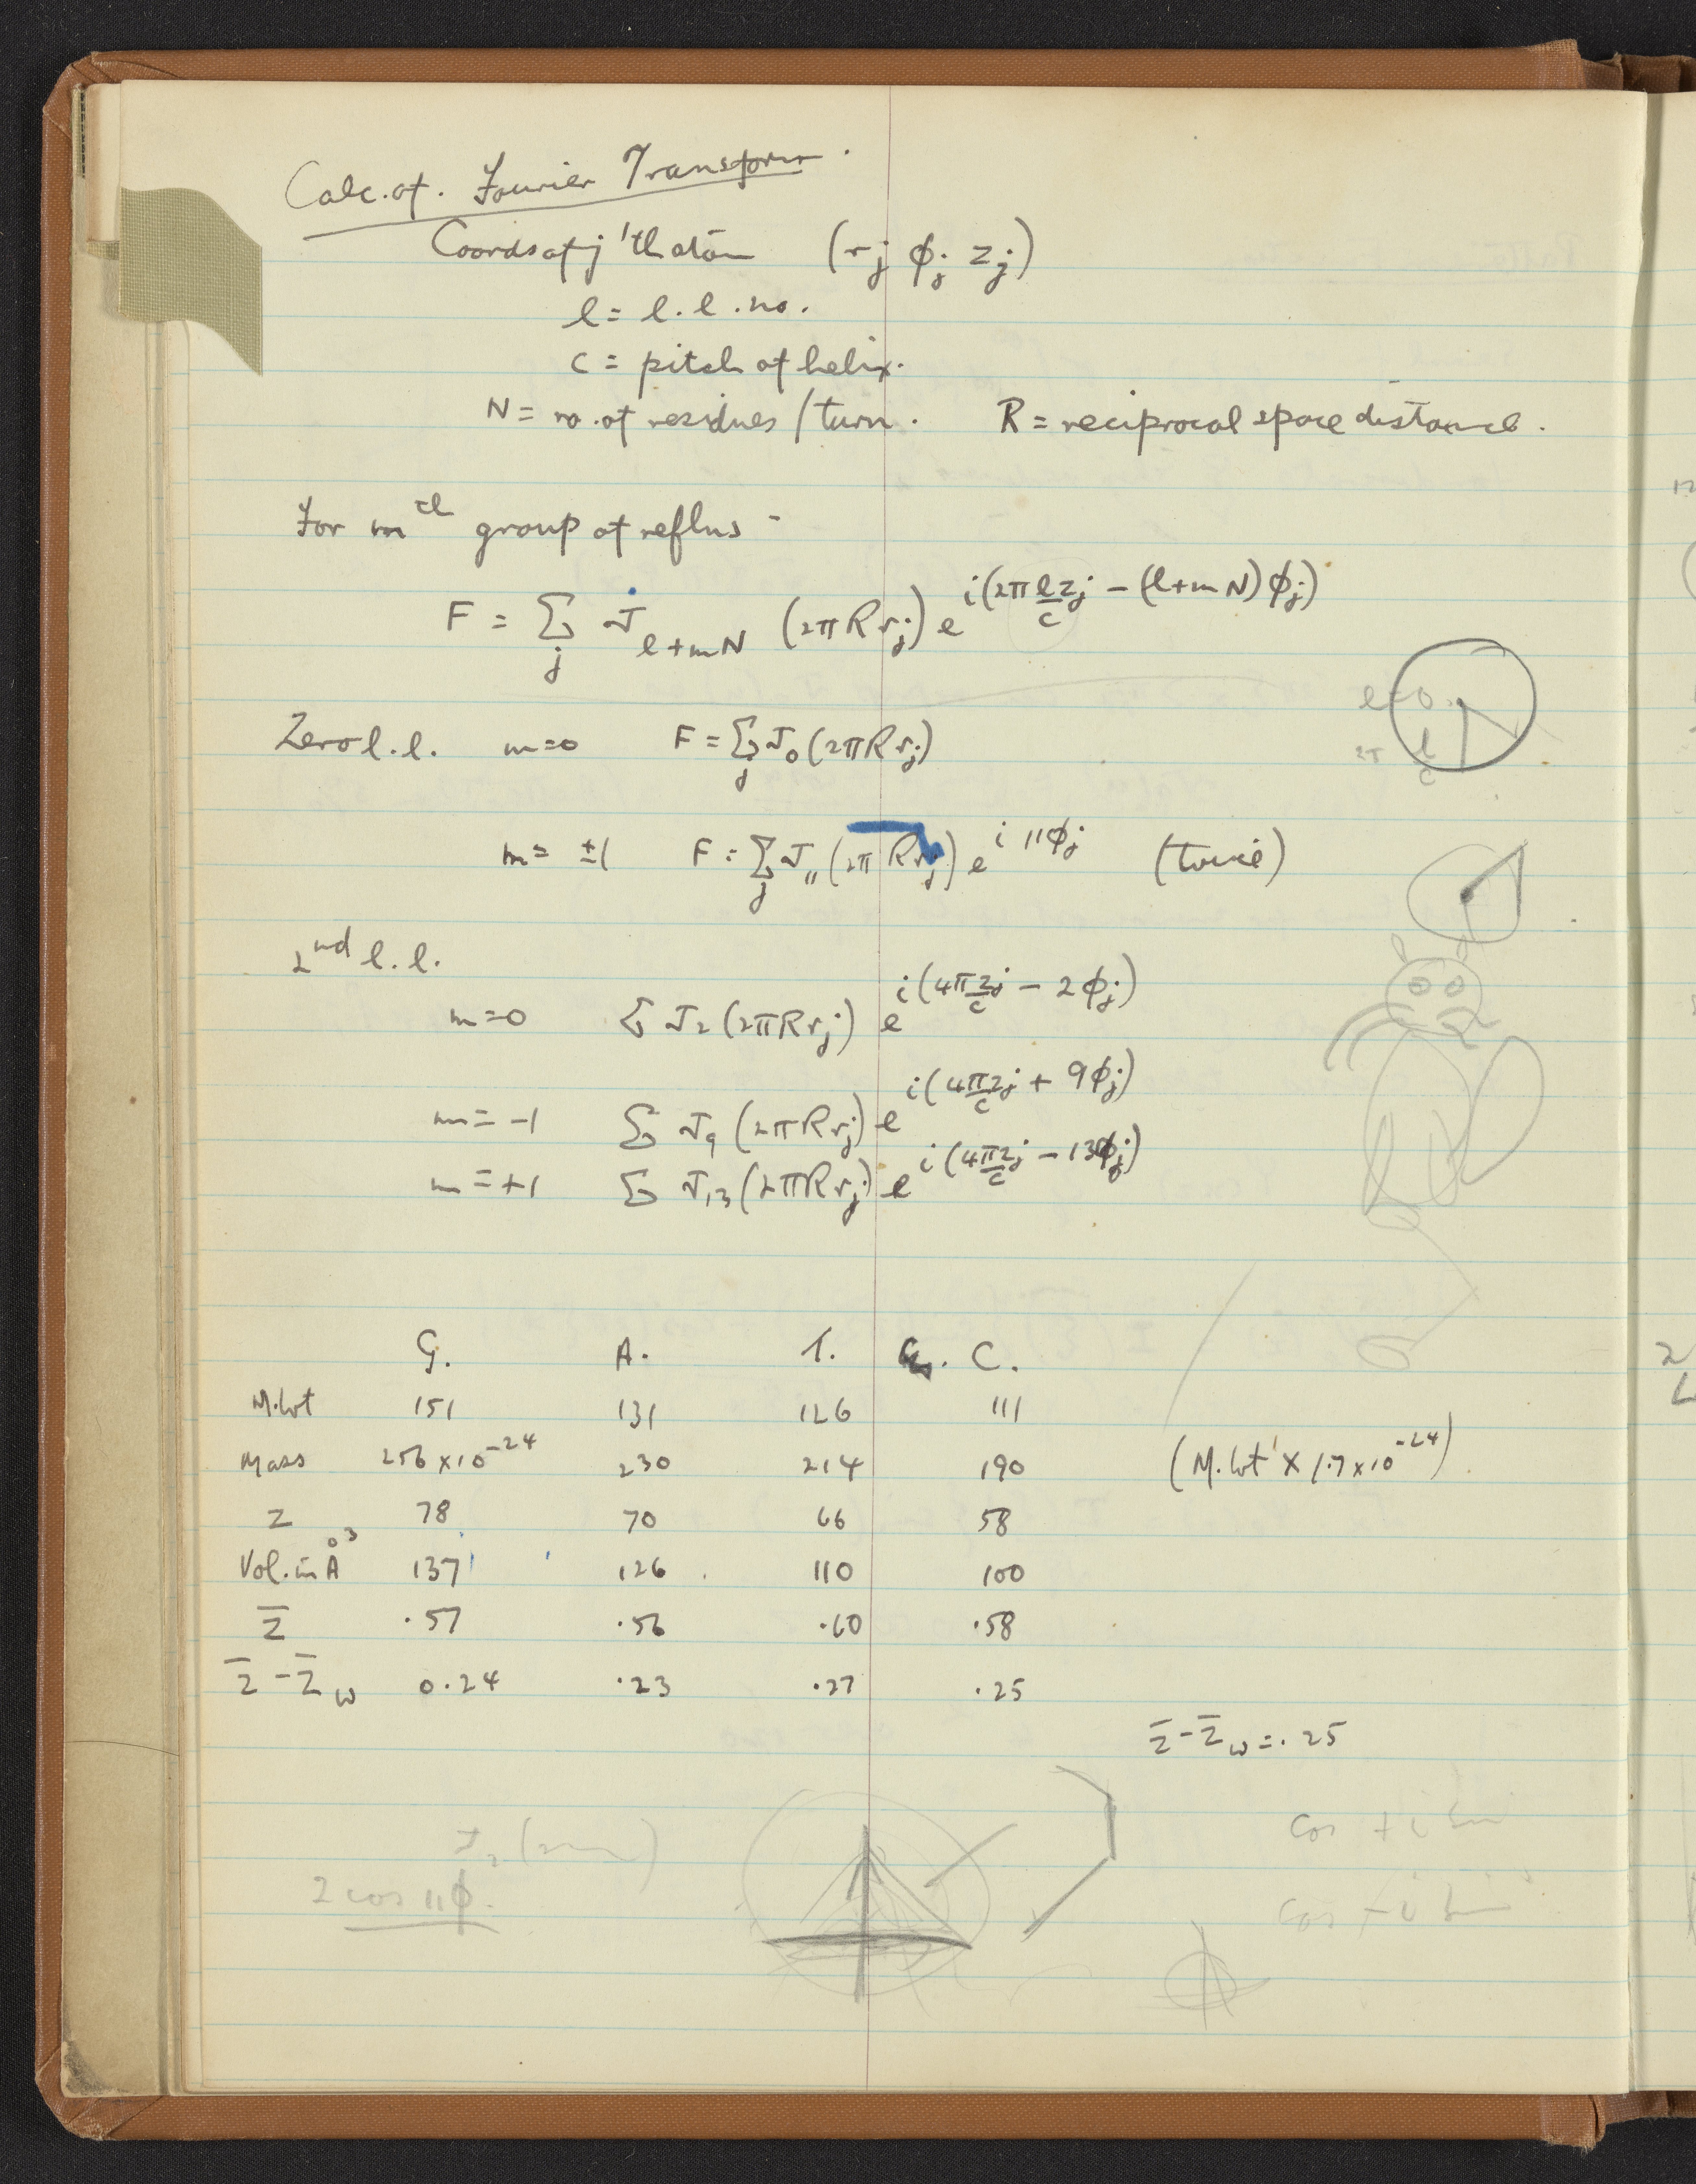 Calc. of. Fourier Transform.
Coords of j'th atom (rj ϕj zj)
l = l.l. no.
c = pitch of helix.
N = no. of residues / turn. R = reciprocal space distance.
For mth group of reflns -
F = Σj J l+mN (2πRrj) e^i(2π lzj/c - (l+mN)ϕj)
l=0
2π l/c
Zero l.l. m=0 F = Σj J0 (2πRrj)
m = ±1 F = Σj J11 (2πRrj) e^i11ϕj (twice)
2nd l.l.
m=0 Σ J2 (2πRrj) e^i(4πzj/c - 2ϕj)
m = -1 Σ J9 (2πRrj) e^i(4πzj/c + 9ϕj)
m = +1 Σ J13 (2πRrj) e^i(4πzj/c - 13ϕj)
G. A. T. C.
M.wt 151 131 126 111
Mass 256 x 10^-24 230 214 190 (M.wt x 1.7 x 10^-24)
Z 78 70 66 58
Vol. in Å³ 137 126 110 100
Z̄ .57 .56 .60 .58
Z̄ - Z̄w 0.24 .23 .27 .25
Z̄ - Z̄w = .25
cos + i sin
2 cos 11ϕ.
cos - i sin